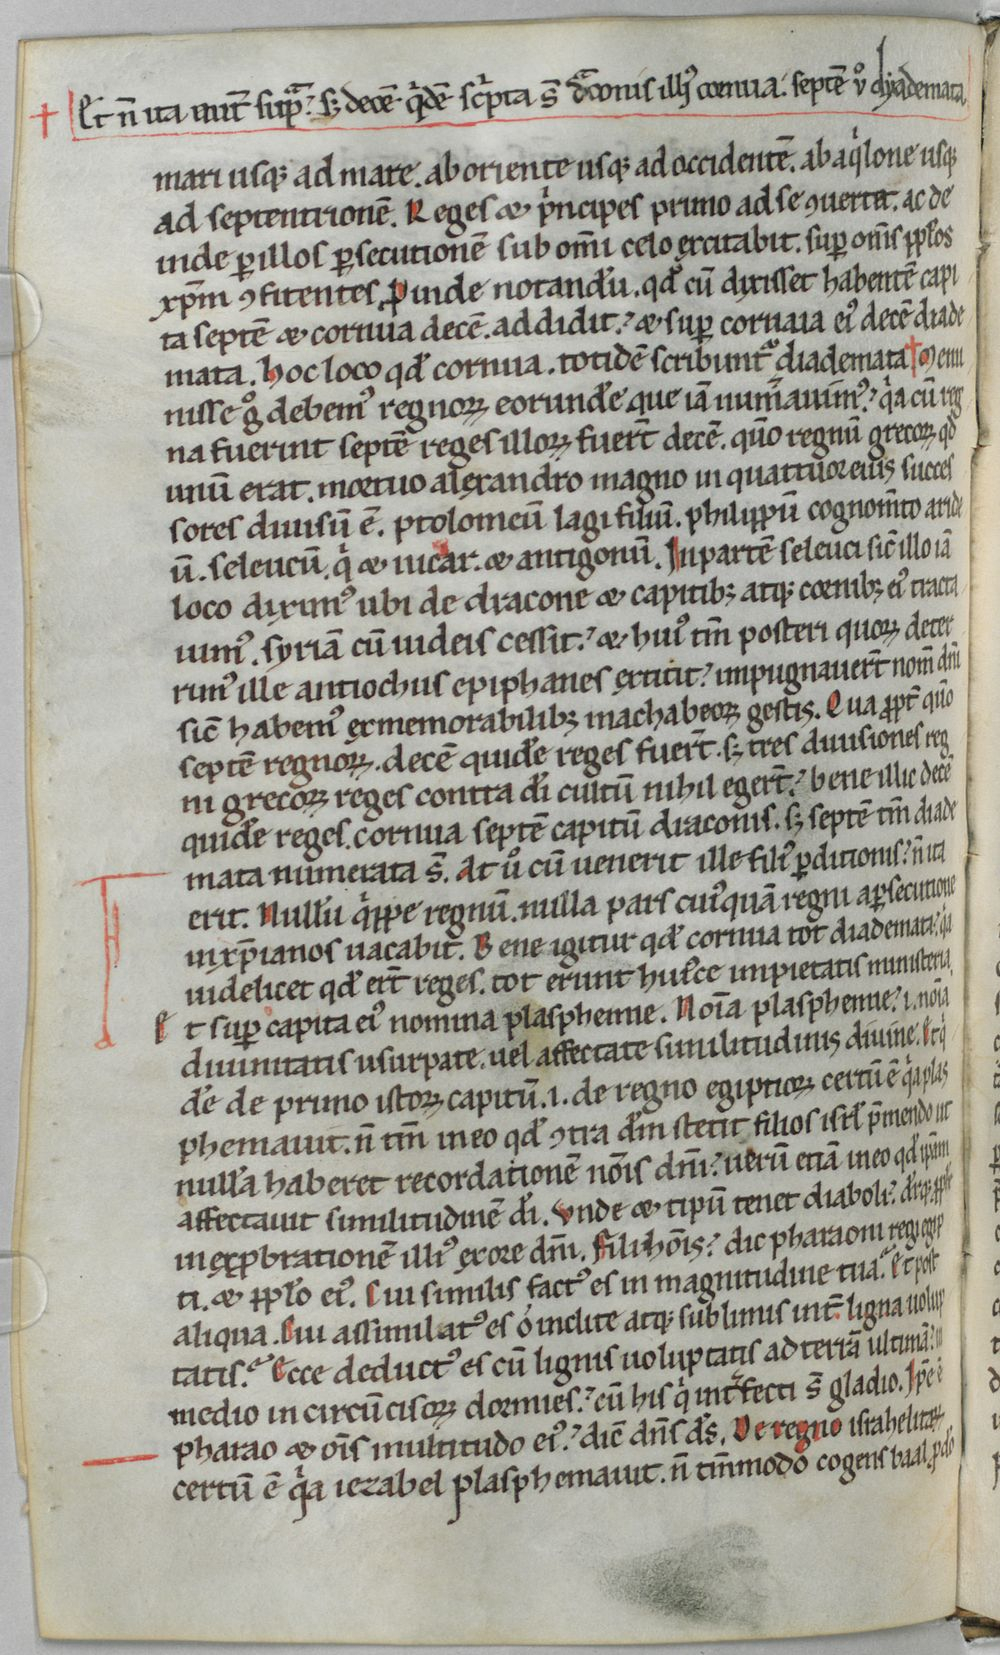 † Et n̄ ita inuit̄ supᵃ? sꝫ decē qͥdē sc̈pta s̄ dͣconis illiꝰ cornua. septē v̊ dyademata.
mari usqꝫ ad mare. ab oriente usqꝫ ad occidentē. ab aqͥlone usqꝫ
ad septentrionē. Reges ⁊ pͥncipes primo ad se ꝯuertit. ac de
inde ꝑ illos ꝑsecutionē sub omī celo excitabit. suꝑ om̄s ppl̄os
xp̄m ꝯfitentes. Proinde notandū. qd̄ cū dixisset habentē capi
ta septē ⁊ cornua decē. addidit? ⁊ suꝑ cornua eiꝰ decē diade
mata. hoc loco qd̄ cornua. totidē scribuntᷣ diademata † Memi
nisse gͦ debemꝰ regnoꝝ eorundē que iā num̄auimꝰ? qͥa cū reg
na fuerint septē reges illoꝝ fuer̄t decē. qūo regnū grecoꝝ qd̄
unū erat. mortuo alexandro magno in quattuor eius succes
sores diuisū ē. ptolomeū lagi filiū. philippū cognom̄to aride
ū. seleucū. qͥ ⁊ nicar. ⁊ antigonū. In partē seleuci sic̄ illo iā
loco diximꝰ ubi de dracone ⁊ capitibꝫ atqꝫ cornibꝫ eiꝰ tracta
uimꝰ. syriā cū iudeis cessit? ⁊ huiꝰ tm̄ posteri quoꝝ deter
rimꝰ ille antiochus epiphanes extitit? impugnauer̄t nom̄ dn̄i
sic̄ habemꝰ ex memorabilibꝫ machabeoꝝ gestis. Qua ꝓpt̄ qūo
septē regnoꝝ. decē quidē reges fuer̄t. sꝫ tres diuisiones reg
ni grecoꝝ reges contra dī cultū nihil eger̄t? bene illic decē
quidē reges. cornua septē capitū draconis. sꝫ septē tm̄ diade
mata numerata s̄. At u̇̊ cū uenerit ille filiꝰ ꝑditionis? n̄ ita
erit. Nullū qͥppe regnū. nulla pars cuiꝰquā regni a ꝑsecutione
in xp̄ianos uacabit. Bene igitur qd̄ cornua tot diademata? qͥa
uidelicet qd̄ er̄t reges. tot erunt huiꝰce impietatis ministeria.
Et suꝑ capita eiꝰ nomina plasphemie. Noīa plasphemie? .i. noīa
diuinitatis usurpate. uel affectate similitudinis diuine. Et qͥ
dē de primo istoꝝ capitū .i. de regno egiptioꝝ certū ē qͥa plas
phemauit. n̄ tm̄ in eo qd̄ ꝯtra dm̄ stetit filios isrl̄ p̄mendo ut
nullā haberet recordationē nōis dn̄i? uerū etiā in eo qd̄ ipam̄
affectauit similitudinē dī. Unde ⁊ tipū tenet diaboli?
in exꝓbrationē illiꝰ ex ore dn̄i. Fili hōis? dic pharaoni regi egip
ti. ⁊ ppl̄o eiꝰ. Cui similis factꝰ es in magnitudine tua? Et post
aliqua. Cui assimilatꝰ es ó inclite atqꝫ sublimis int̄ ligna uolup
tatis? Ecce deductꝰ es cū lignis uoluptatis ad terrā ultimā? in
medio in circūcisoꝝ dormies? cū his qͥ int̄fecti s̄ gladio. Ip̄e ē
pharao ⁊ oīs multitudo eiꝰ? dic̄ dn̄s ds̄. De regno israhelitaꝝ
certū ē qͥa iezabel plasphemauit. n̄ tm̄modo cogens baal ꝓ do